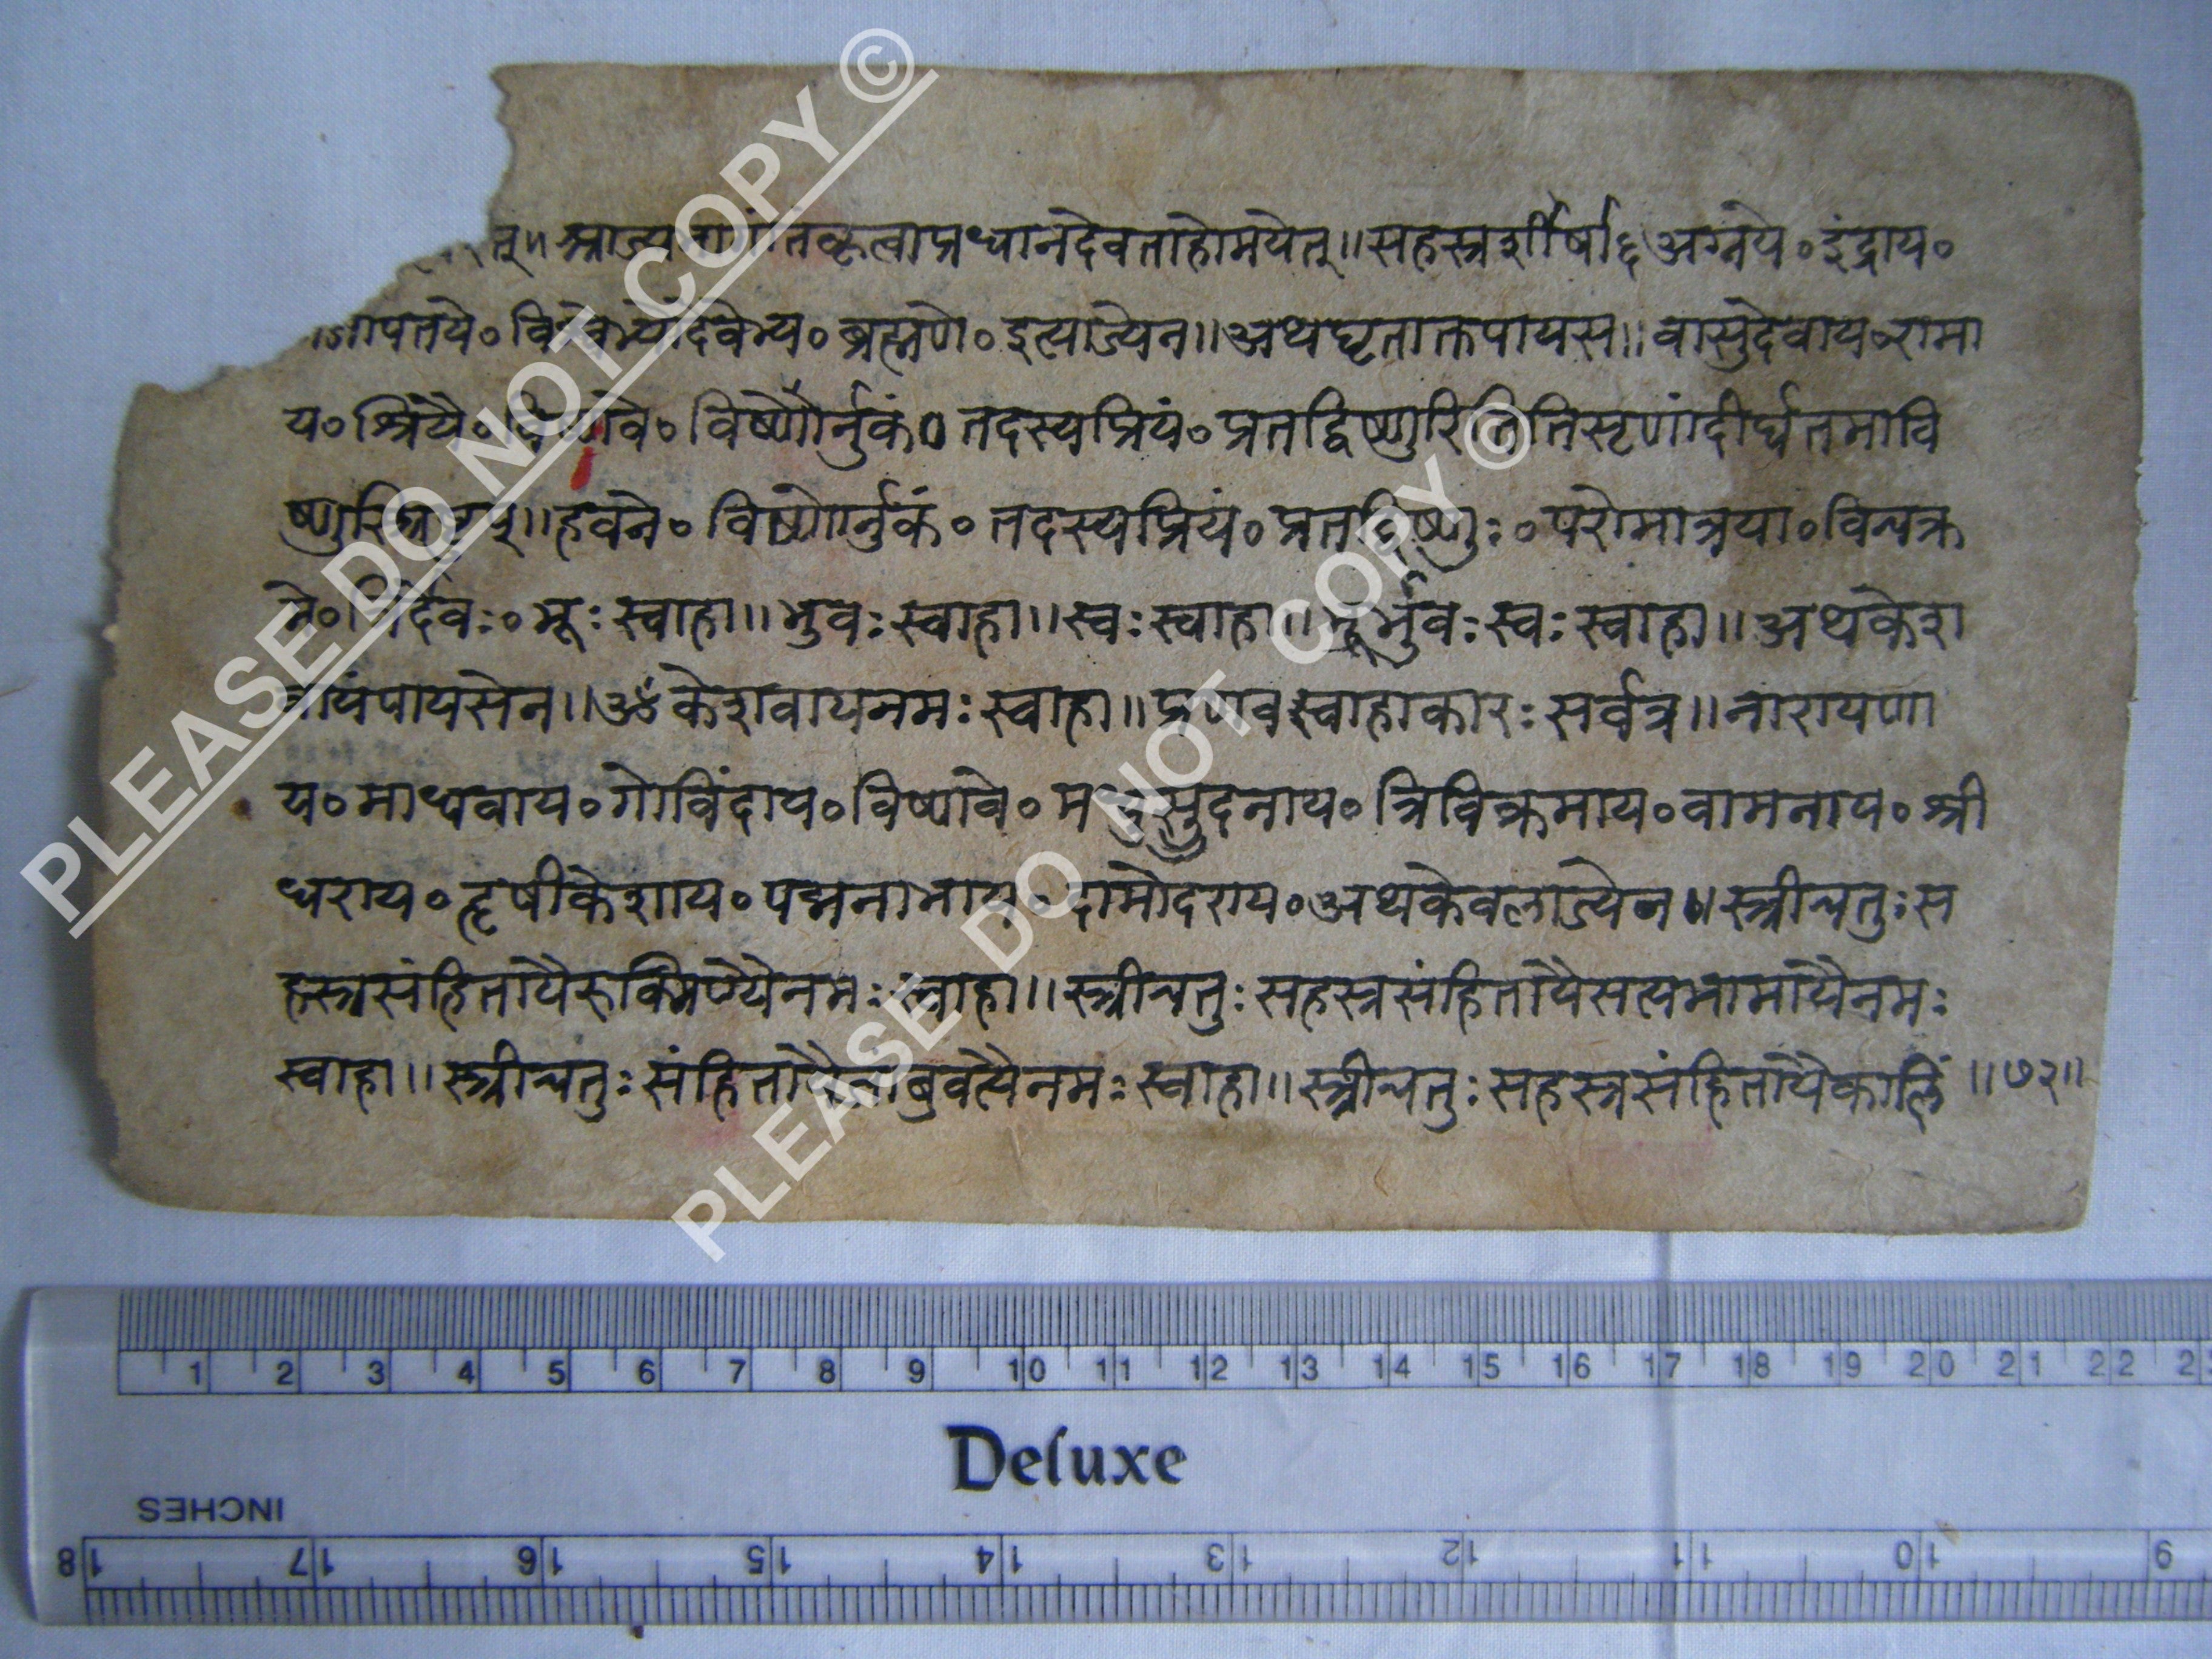 त्॥आज्यभागांतंकृत्वाप्रधानदेवताहोमयेत्॥सहस्त्रशीर्षा६अग्नये॰इंद्राय॰
जापतये॰विश्वेभ्योदेवेभ्य॰ब्रह्मणे॰इत्याज्येन॥अथघृताक्तपायस॥वासुदेवाय॰रामा
य॰श्रियै॰विष्णवे॰विष्णोर्नुकं॰तदस्यप्रियं॰प्रतद्विष्णुरितितिसृणांदीर्घतमावि
ष्णुस्त्रिष्टुप्॥हवने॰विष्णोर्नुकं॰तदस्यप्रियं॰प्रतद्विष्णुः॰परोमात्रया॰विचक्र
मे॰त्रिर्देवः॰भूःस्वाहा॥भुवःस्वाहा॥स्वःस्वाहा॥भूर्भुवःस्वःस्वाहा॥अथकेश
वायंपायसेन॥ॐकेशवायनमःस्वाहा॥प्रणवस्वाहाकारःसर्वत्र॥नारायणा
य॰माधवाय॰गोविंदाय॰विष्णवे॰मधुसुदनाय॰त्रिविक्रमाय॰वामनाय॰श्री
धराय॰हृषीकेशाय॰पद्मनाभाय॰दामोदराय॰अथकेवलाज्येन॥स्त्रीचतुःस
हस्त्रसंहितायैरुक्मिण्यैनमःस्वाहा॥स्त्रीचतुःसहस्त्रसंहितायैसत्यभामायैनमः
स्वाहा॥स्त्रीचतुःसंहितायैजांबुवत्यैनमःस्वाहा॥स्त्रीचतुःसहस्त्रसंहितायैकालिं ॥७२॥
PLEASE DO NOT COPY ©
PLEASE DO NOT COPY ©
1 2 3 4 5 6 7 8 9 10 11 12 13 14 15 16 17 18 19 20 21 22
Deluxe
INCHES
18 17 16 15 14 13 12 11 10 9